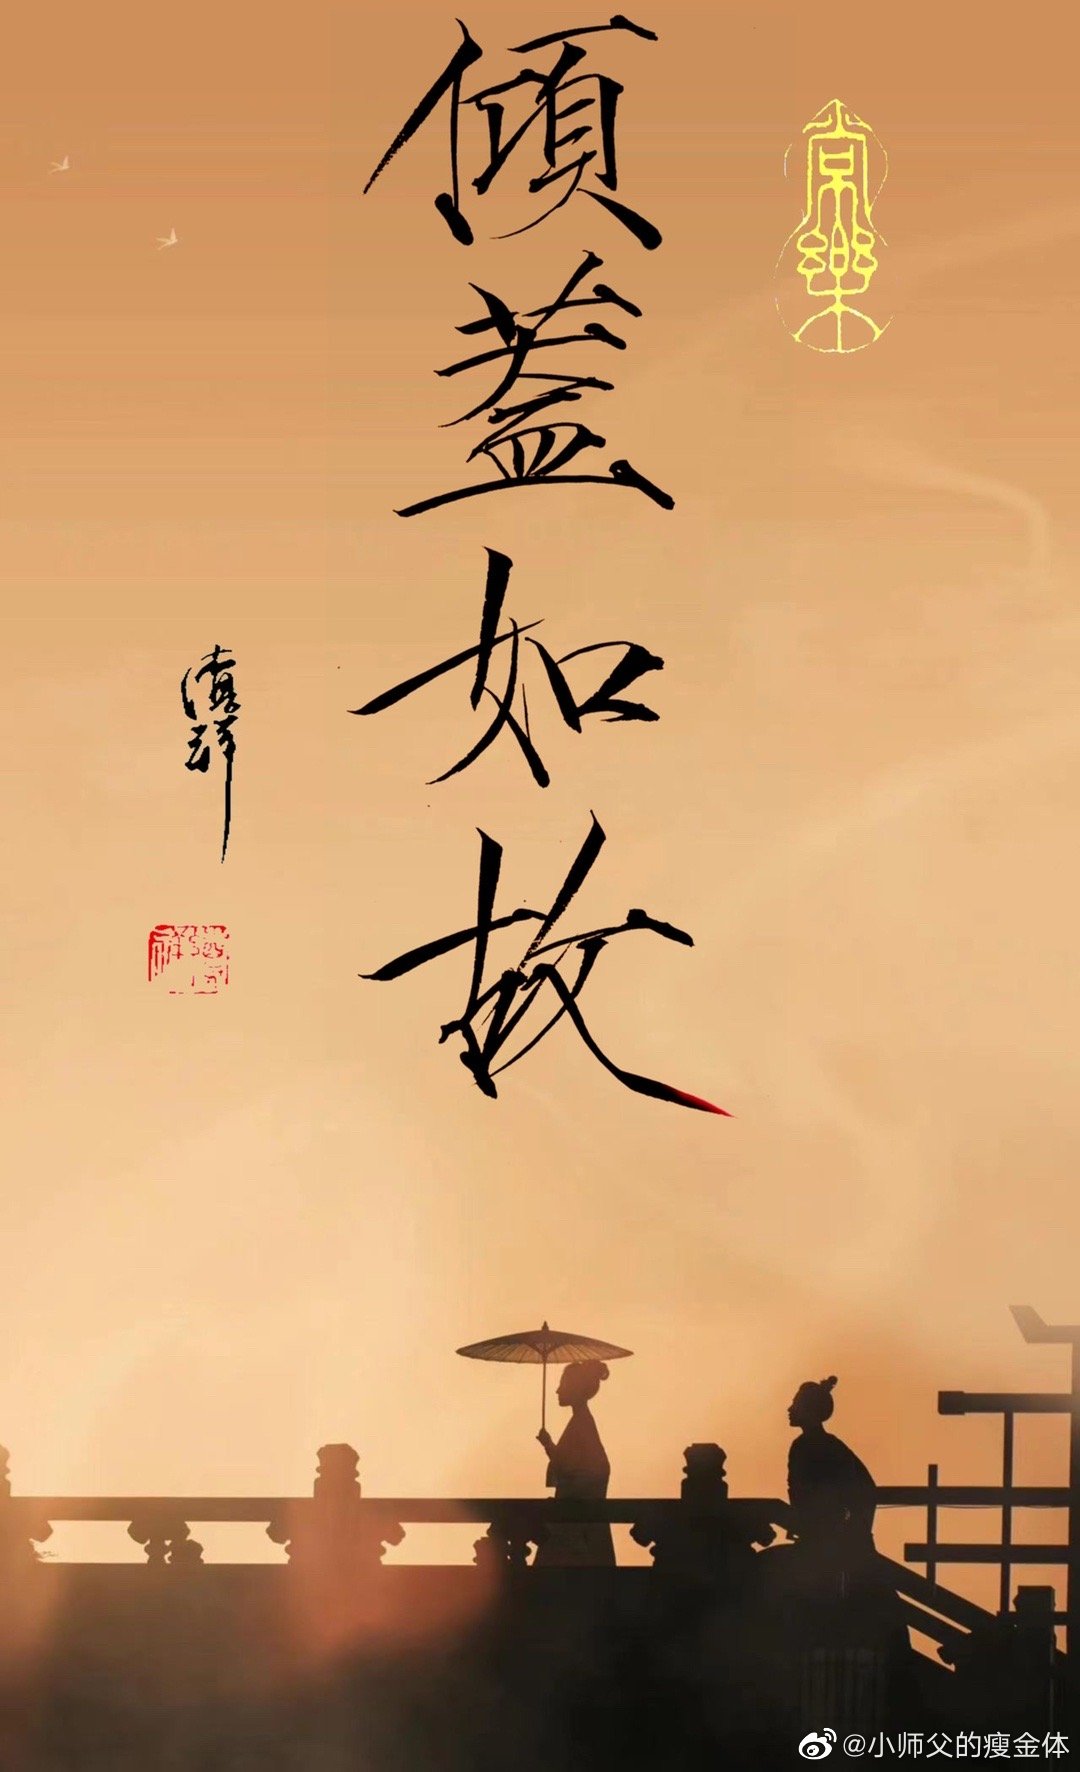 傾蓋如故
常樂
@小师父的瘦金体